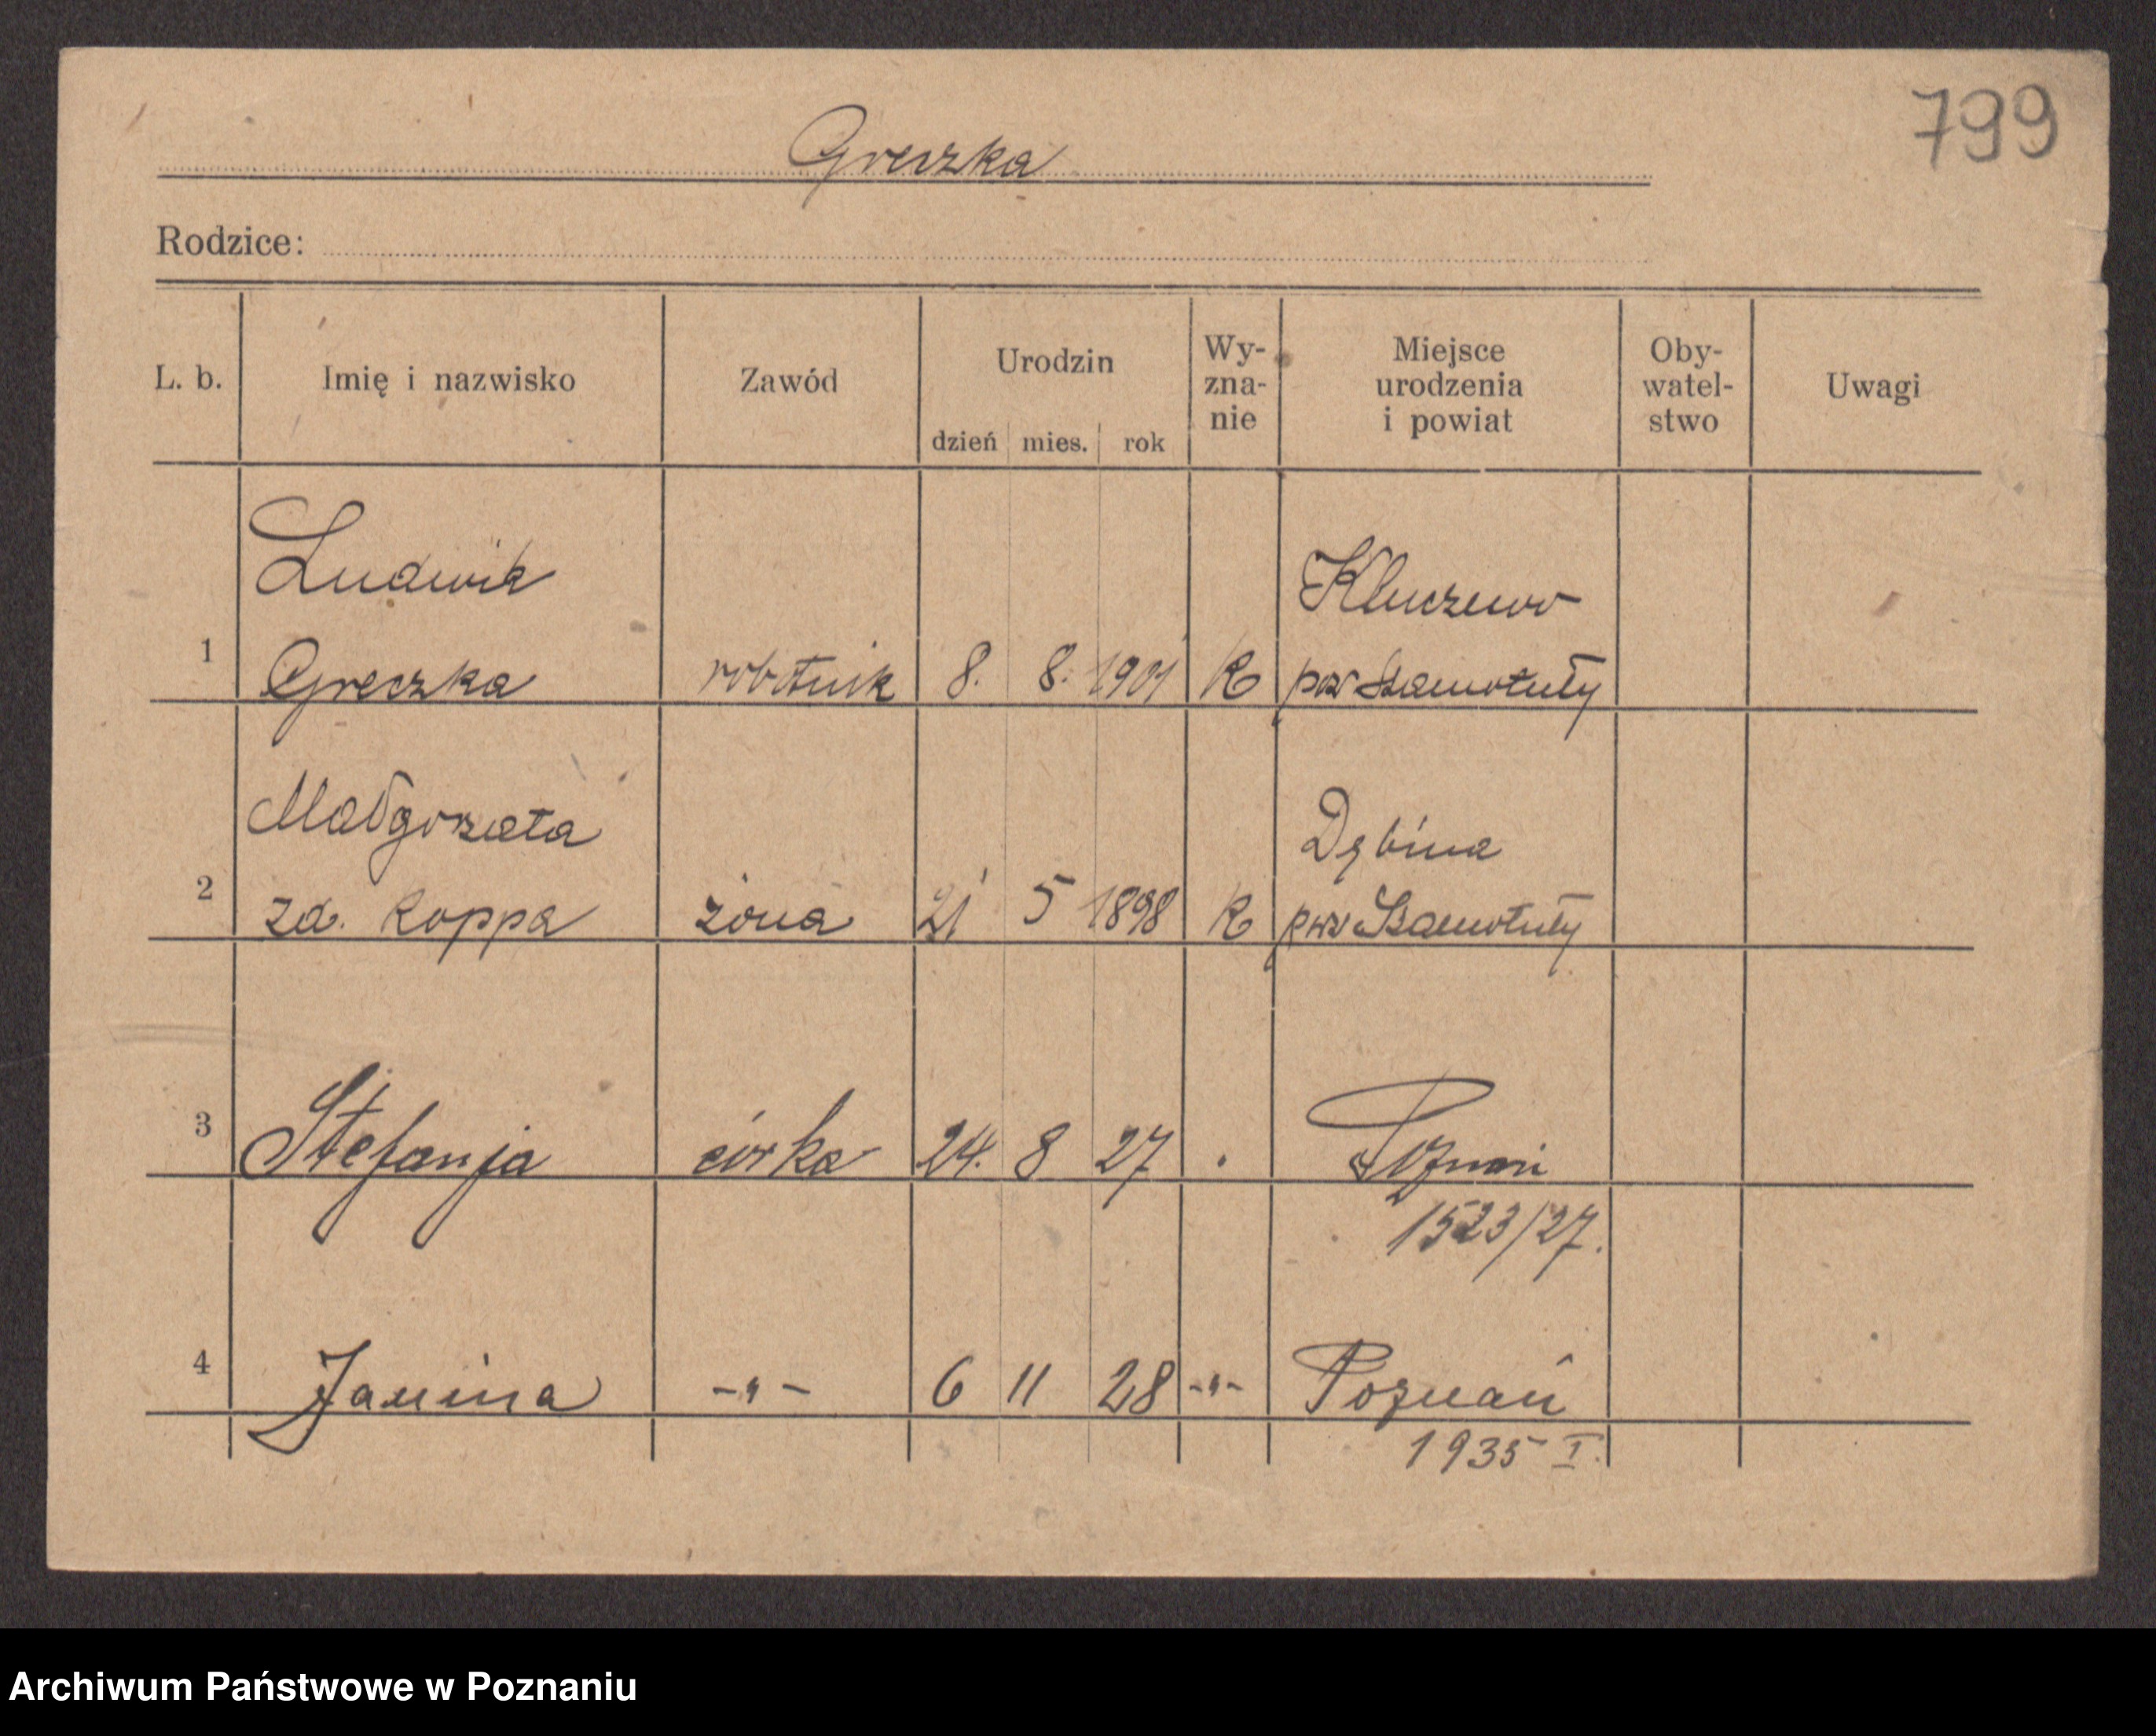 799
Greczka
Rodzice:
L. b. Imię i nazwisko Zawód Urodzin dzień mies. rok Wy-zna-nie Miejsce urodzenia i powiat Oby-watel-stwo Uwagi
Ludwik Kluczewo
1 Greczka robotnik 8. 8. 1901 K pow Szamotuły
Małgorzata Dębina
2 zd. Koppa żona 21 5 1898 K pow Szamotuły
3 Stefanja córka 24. 8 27 . Poznań
1523/27.
4 Janina -„- 6 11 28 -„- Poznań
1935 I.
Archiwum Państwowe w Poznaniu